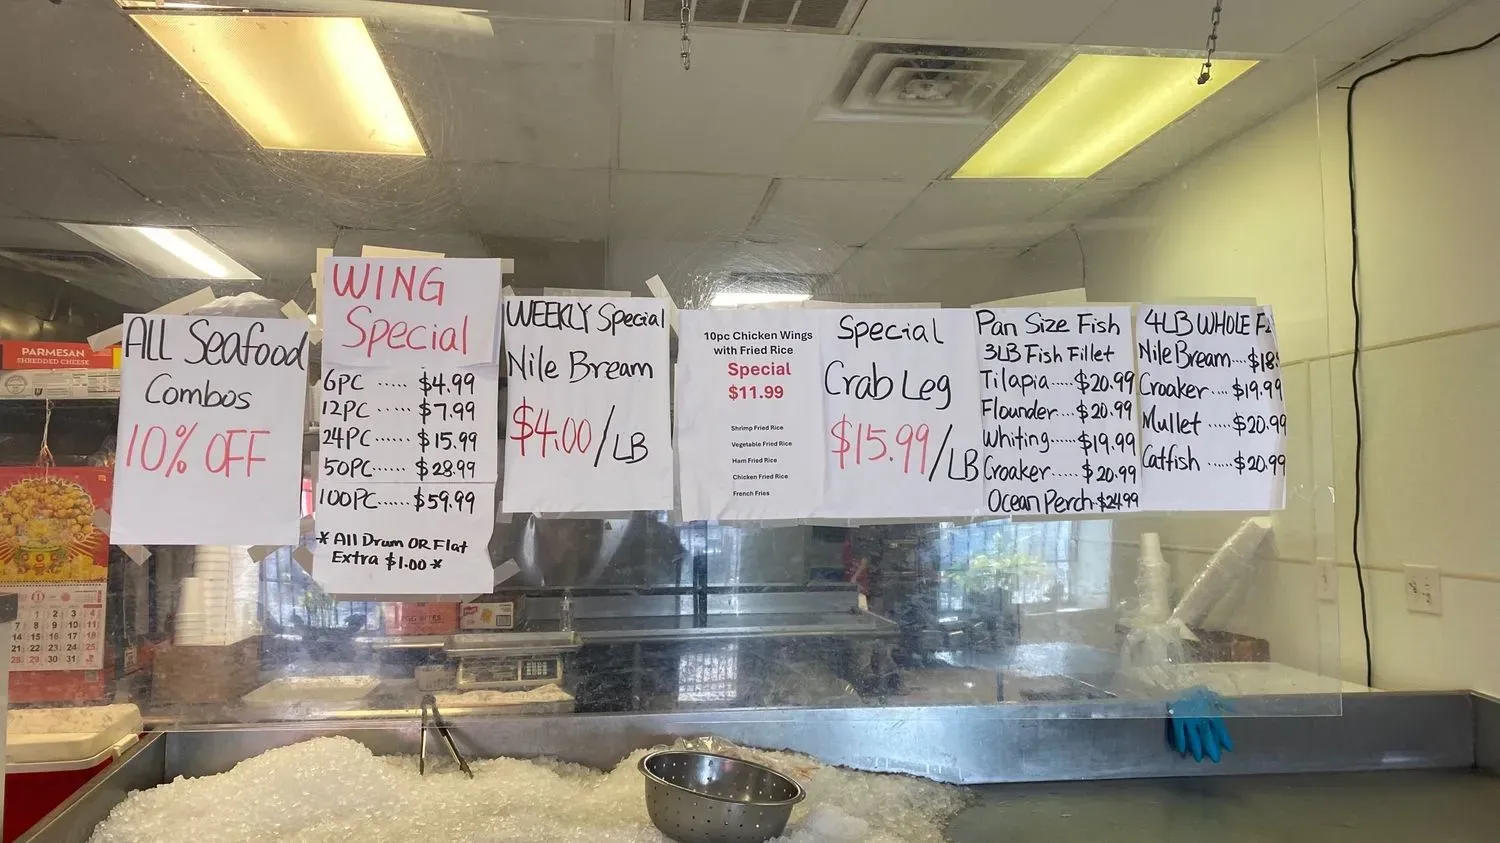 ALL Seafood
Combos
10% OFF
WING
Special
6PC ..... $4.99
12PC ..... $7.99
24PC ...... $15.99
50PC ...... $28.99
100PC ...... $59.99
* All Drum OR Flat
Extra $1.00 *
WEEKLY Special
Nile Bream
$4.00/LB
10pc Chicken Wings
with Fried Rice
Special
$11.99
Shrimp Fried Rice
Vegetable Fried Rice
Ham Fried Rice
Chicken Fried Rice
French Fries
Special
Crab Leg
$15.99/LB
Pan Size Fish
3LB Fish Fillet
Tilapia ..... $20.99
Flounder ... $20.99
Whiting ...... $19.99
Croaker ..... $20.99
Ocean Perch . $24.99
4LB WHOLE
Nile Bream .... $18
Croaker .... $19.99
Mullet ..... $20.99
Catfish ...... $20.99
PARMESAN
SHREDDED CHEESE
1 2 3 4
7 8 9 10 11
14 15 16 17 18
21 22 23 24 25
28 29 30 31